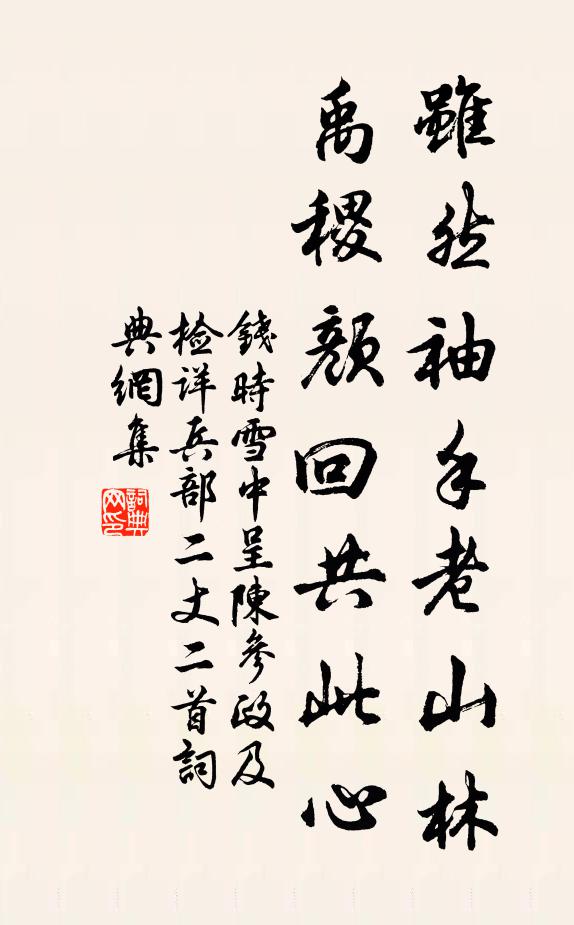 雖然袖手老山林
禹稷顏回共此心
錢時雪中呈陳參政及
檢详兵部二丈二首詞
典網集
詞典
网印